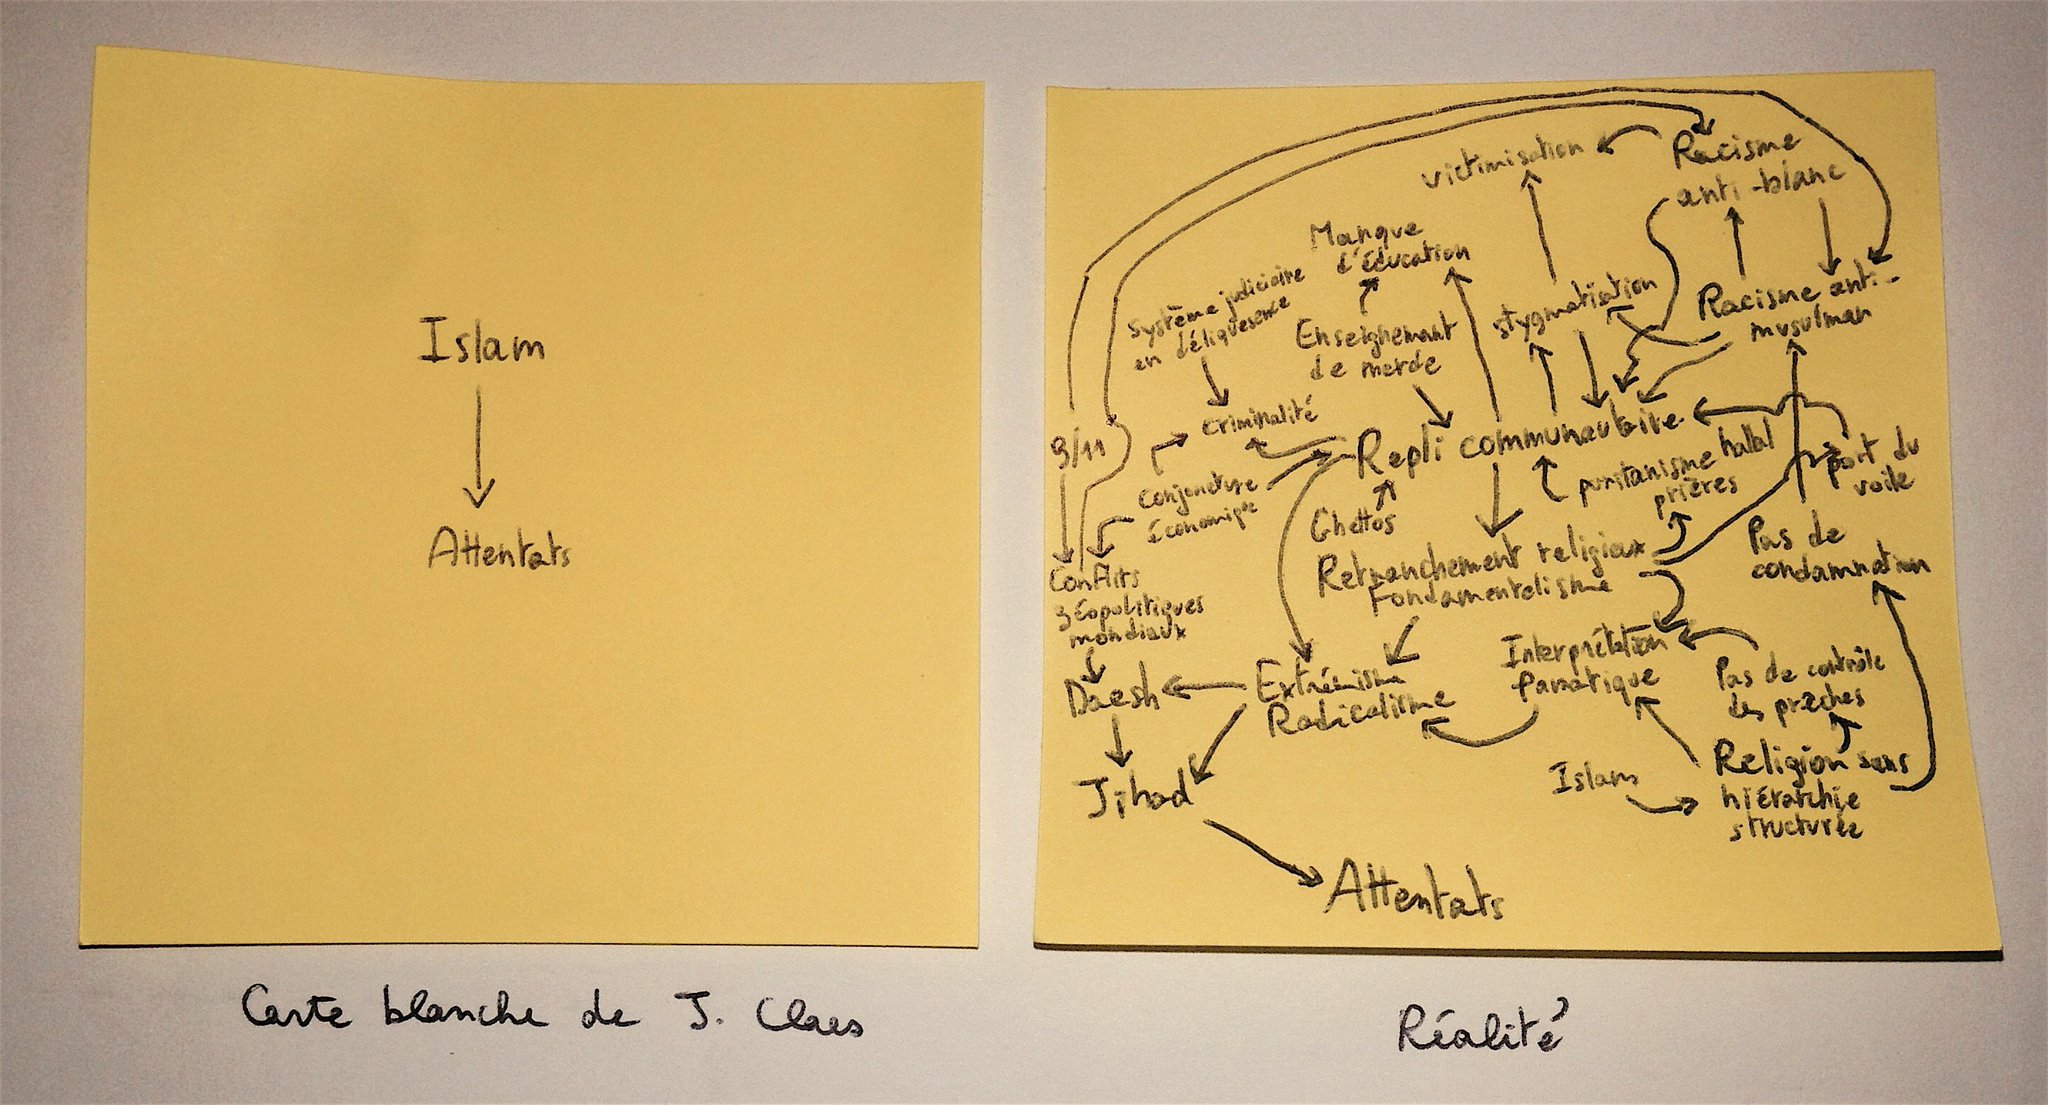 Islam
Attentats
Carte blanche de J. Claes
victimisation
Racisme
anti-blanc
Manque
d'éducation
Système judiciaire
en déliquesence
stygmatisation
Racisme anti-
musulman
Enseignement
de merde
criminalité
9/11
Repli communautaire
puritanisme hallal
prières
port du
voile
conjoncture
économique
Ghettos
Retranchement religieux
Fondamentalisme
Pas de
condamnation
Conflits
géopolitiques
mondiaux
Interprétation
fanatique
Pas de contrôle
des prêches
Daesh
Extrémisme
Radicalisme
Jihad
Islam
Religion sans
hiérarchie
structurée
Attentats
Réalité